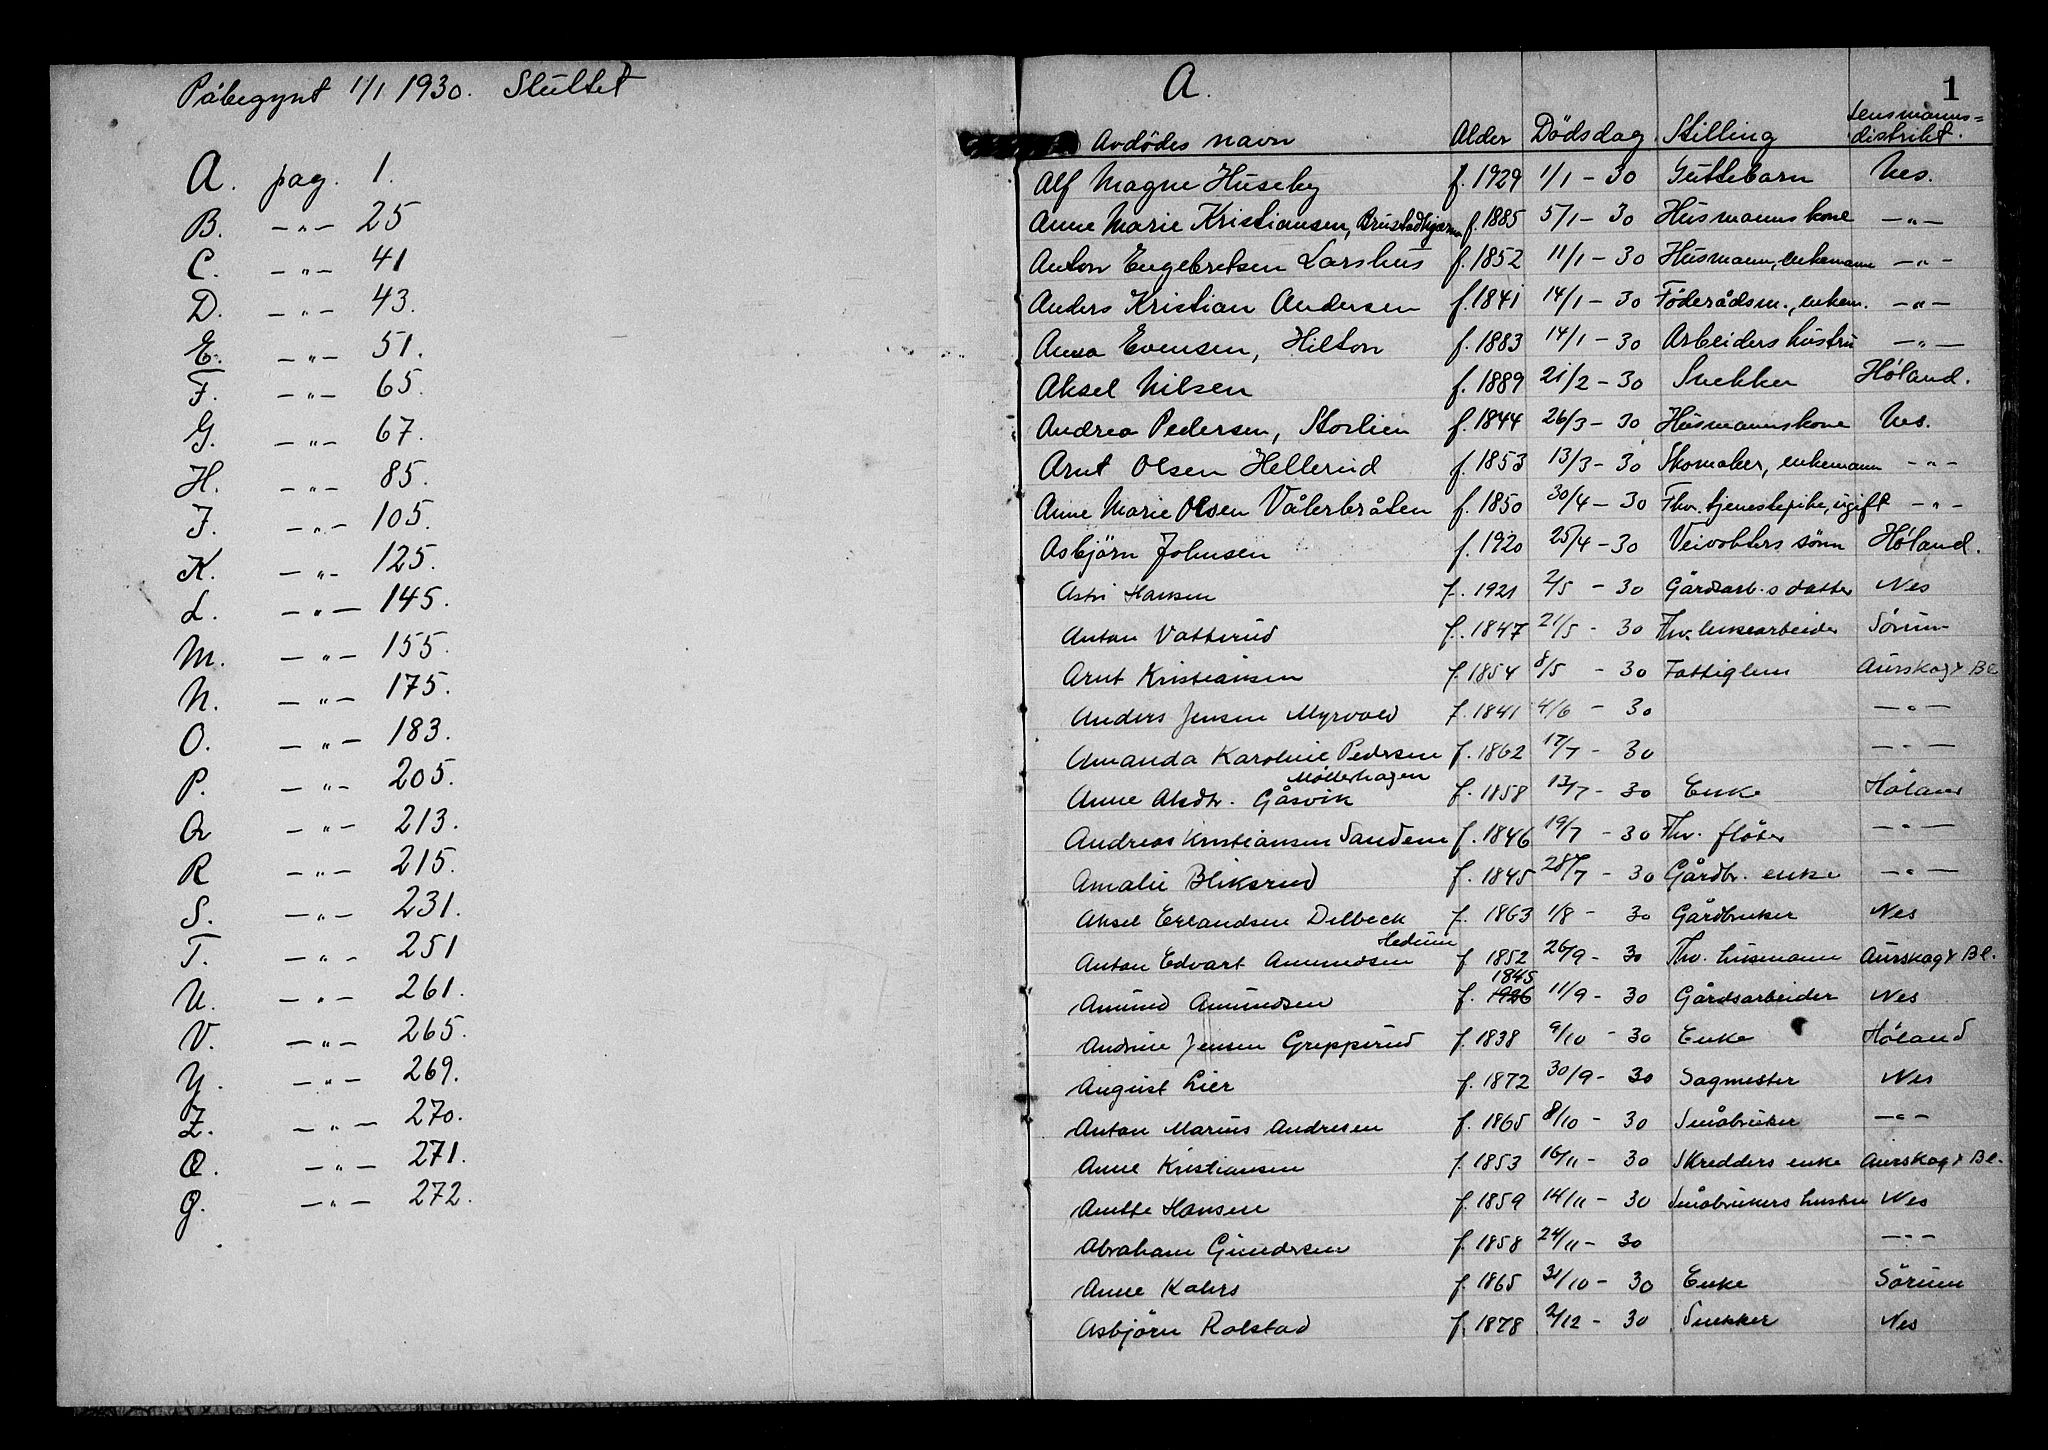 Påbegynt 1/1 1930. Sluttet
A. pag. 1.
B. — " — 25
C. — " — 41
D. — " — 43.
E. — " — 51.
F. — " — 65.
G. — " — 67.
H. — " — 85.
J. — " — 105.
K. — " — 125.
L. — " — 145.
M. — " — 155.
N. — " — 175.
O. — " — 183.
P. — " — 205.
Q — " — 213.
R — " — 215.
S. — " — 231.
T. — " — 251
U. — " — 261.
V. — " — 265.
Y. — " — 269.
Z. — " — 270.
Ø. — " — 271.
— " — 272.
A. 1
Avdødes navn Alder Dødsdag Stilling Lensmanns=distrikt.
Alf Magne Huseby f. 1929 1/1 – 30 Guttebarn Nes.
Anne Marie Kristiansen, f. 1885 5/1 – 30 Husmannskone — " —
Anton Engebretsen Larshus f. 1852 11/1 – 30 Husmann, enkemann — " —
Anders Kristian Andersen f. 1841 14/1 – 30 Föderådsm., enkem. — " —
Anna Evensen, Hilton f. 1883 14/1 – 30 Arbeiders hustru — " —
Aksel Nilsen f. 1889 21/2 – 30 Snekker Høland.
Andrea Pedersen, Storlien f. 1844 26/3 – 30 Husmannskone Nes.
Arnt Olsen Hellerud f. 1853 13/3 – 30 Skomaker, enkemann — " —
Anne Marie Olsen Vålerbråten f. 1850 30/4 – 30 Fhv. tjenestepike, ugift — " —
Asbjörn Johnsen f. 1920 25/4 – 30 Veivokters sönn Høland.
Astri Hansen f. 1921 2/5 – 30 Gårdsarb.s datter Nes
Anton Vatterud f. 1847 21/5 – 30 Fhv. Sørum
Arnt Kristiansen f. 1854 8/5 – 30 Fattiglem Aurskog & Bl
Anders Jensen Myrvold f. 1841 4/6 – 30 — " —
Amanda Karoline Pedersen f. 1862 17/7 – 30 — " —
Møllerhagen
Anne Aksdtr. Gåsvik f. 1858 13/7 – 30 Enke Høland
Andreas Kristiansen Sandem f. 1846 19/7 – 30 Fhv. fløter — " —
Amalie Bliksrud f. 1845 28/7 – 30 Gårdbr. enke — " —
Aksel Erlandsen Delbeck f. 1863 1/8 – 30 Gårdbruker Nes
Anton Edvart Amundsen f 1852 26/9 – 30 Fhv. husmann Aurskog & Bl.
1845
Amund Amundsen f. 1926 11/9 – 30 Gårdsarbeider Nes
Andrine Jensen Grepperud f. 1838 9/10 – 30 Enke Høland
August Lier f. 1872 30/9 – 30 Sagmester Nes
Anton Marius Andresen f. 1865 8/10 – 30 Småbruker — " —
Anne Kristiansen f. 1853 16/11 – 30 Skredders enke Aurskog & Bl.
Anette Hansen f. 1859 14/11 – 30 Småbrukers hustru Nes
Abraham Gundersen f. 1858 24/11 – 30 — " —
Anne Kahrs f. 1865 31/10 – 30 Enke Sörum
Asbjörn Rolstad f. 1878 2/12 – 30 Snekker Nes